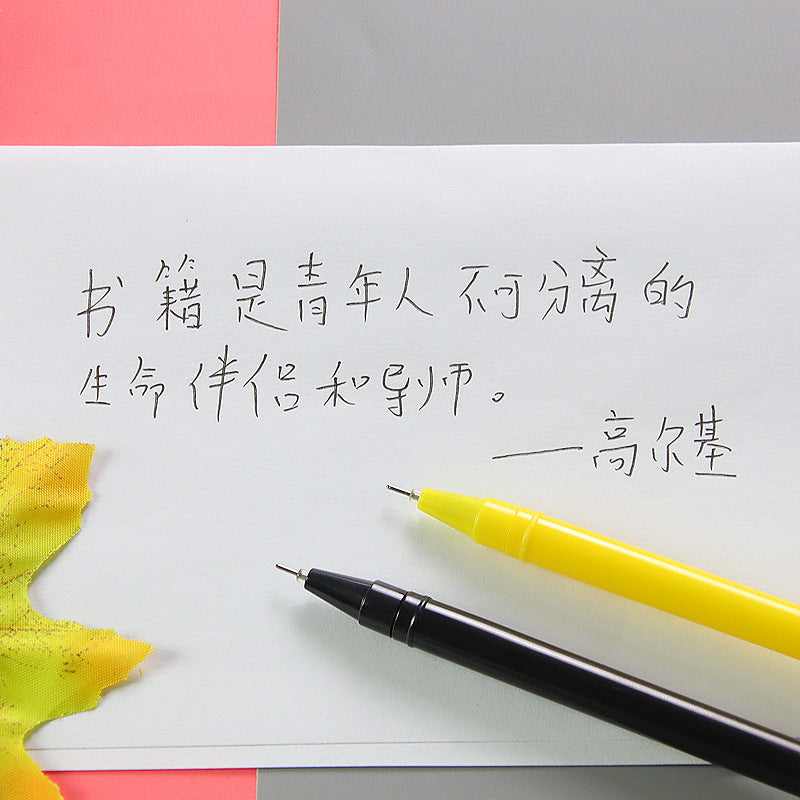 书籍是青年人不可分离的
生命伴侣和导师。
——高尔基